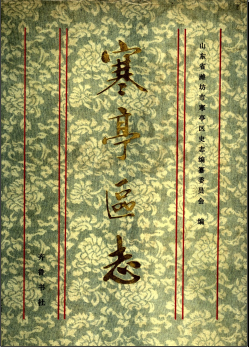 山东省潍坊市寒亭区史志编纂委员会 编
寒亭區志
齐鲁书社